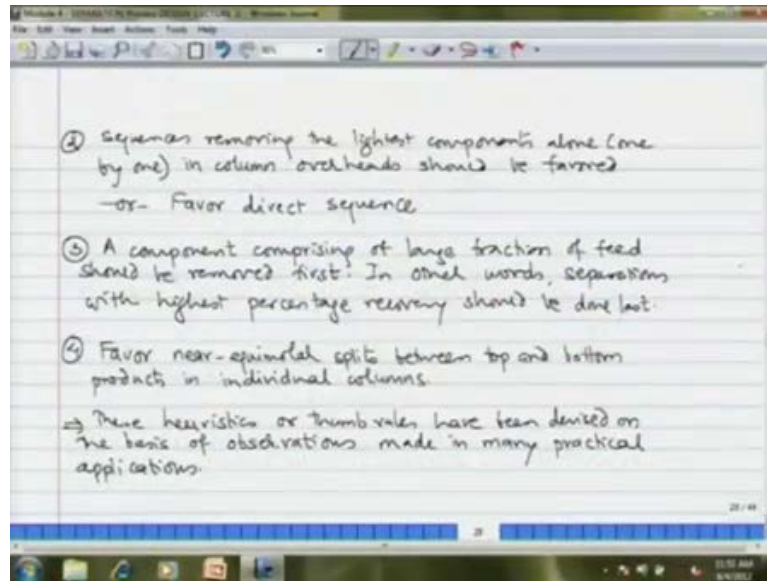 File Edit View Insert Actions Tools Help
② Sequences removing the lightest components alone (one
by one) in column overheads should be favored
-or- Favor direct sequence
③ A component comprising of large fraction of feed
should be removed first. In other words, separations
with highest percentage recovery should be done last.
④ Favor near-equimolar splits between top and bottom
products in individual columns.
⇒ These heuristics or thumb rules have been devised on
the basis of observations made in many practical
applications.
11:52 AM